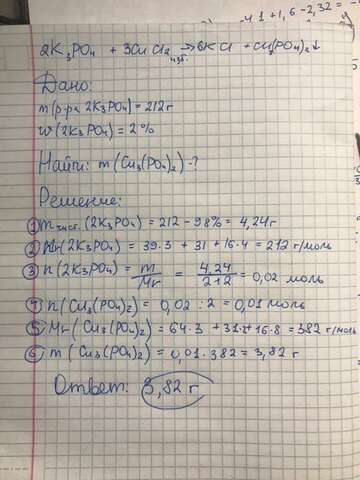 -4 1 + 1,6 - 2,32 =
2K₃PO₄ + 3CuCl₂ → 6KCl + Cu₃(PO₄)₂↓
изб.
Дано:
m(р-ра 2K₃PO₄) = 212 г
w(2K₃PO₄) = 2%
Найти: m(Cu₃(PO₄)₂) - ?
Решение:
① m чист. (2K₃PO₄) = 212 - 98% = 4,24г
② Mr(2K₃PO₄) = 39·3 + 31 + 16·4 = 212 г/моль
③ n(2K₃PO₄) = m/Mr = 4,24/212 = 0,02 моль
④ n(Cu₃(PO₄)₂) = 0,02 : 2 = 0,01 моль
⑤ Mr(Cu₃(PO₄)₂) = 64·3 + 31·2 + 16·8 = 382 г/моль
⑥ m(Cu₃(PO₄)₂) = 0,01·382 = 3,82 г
Ответ: 3,82 г